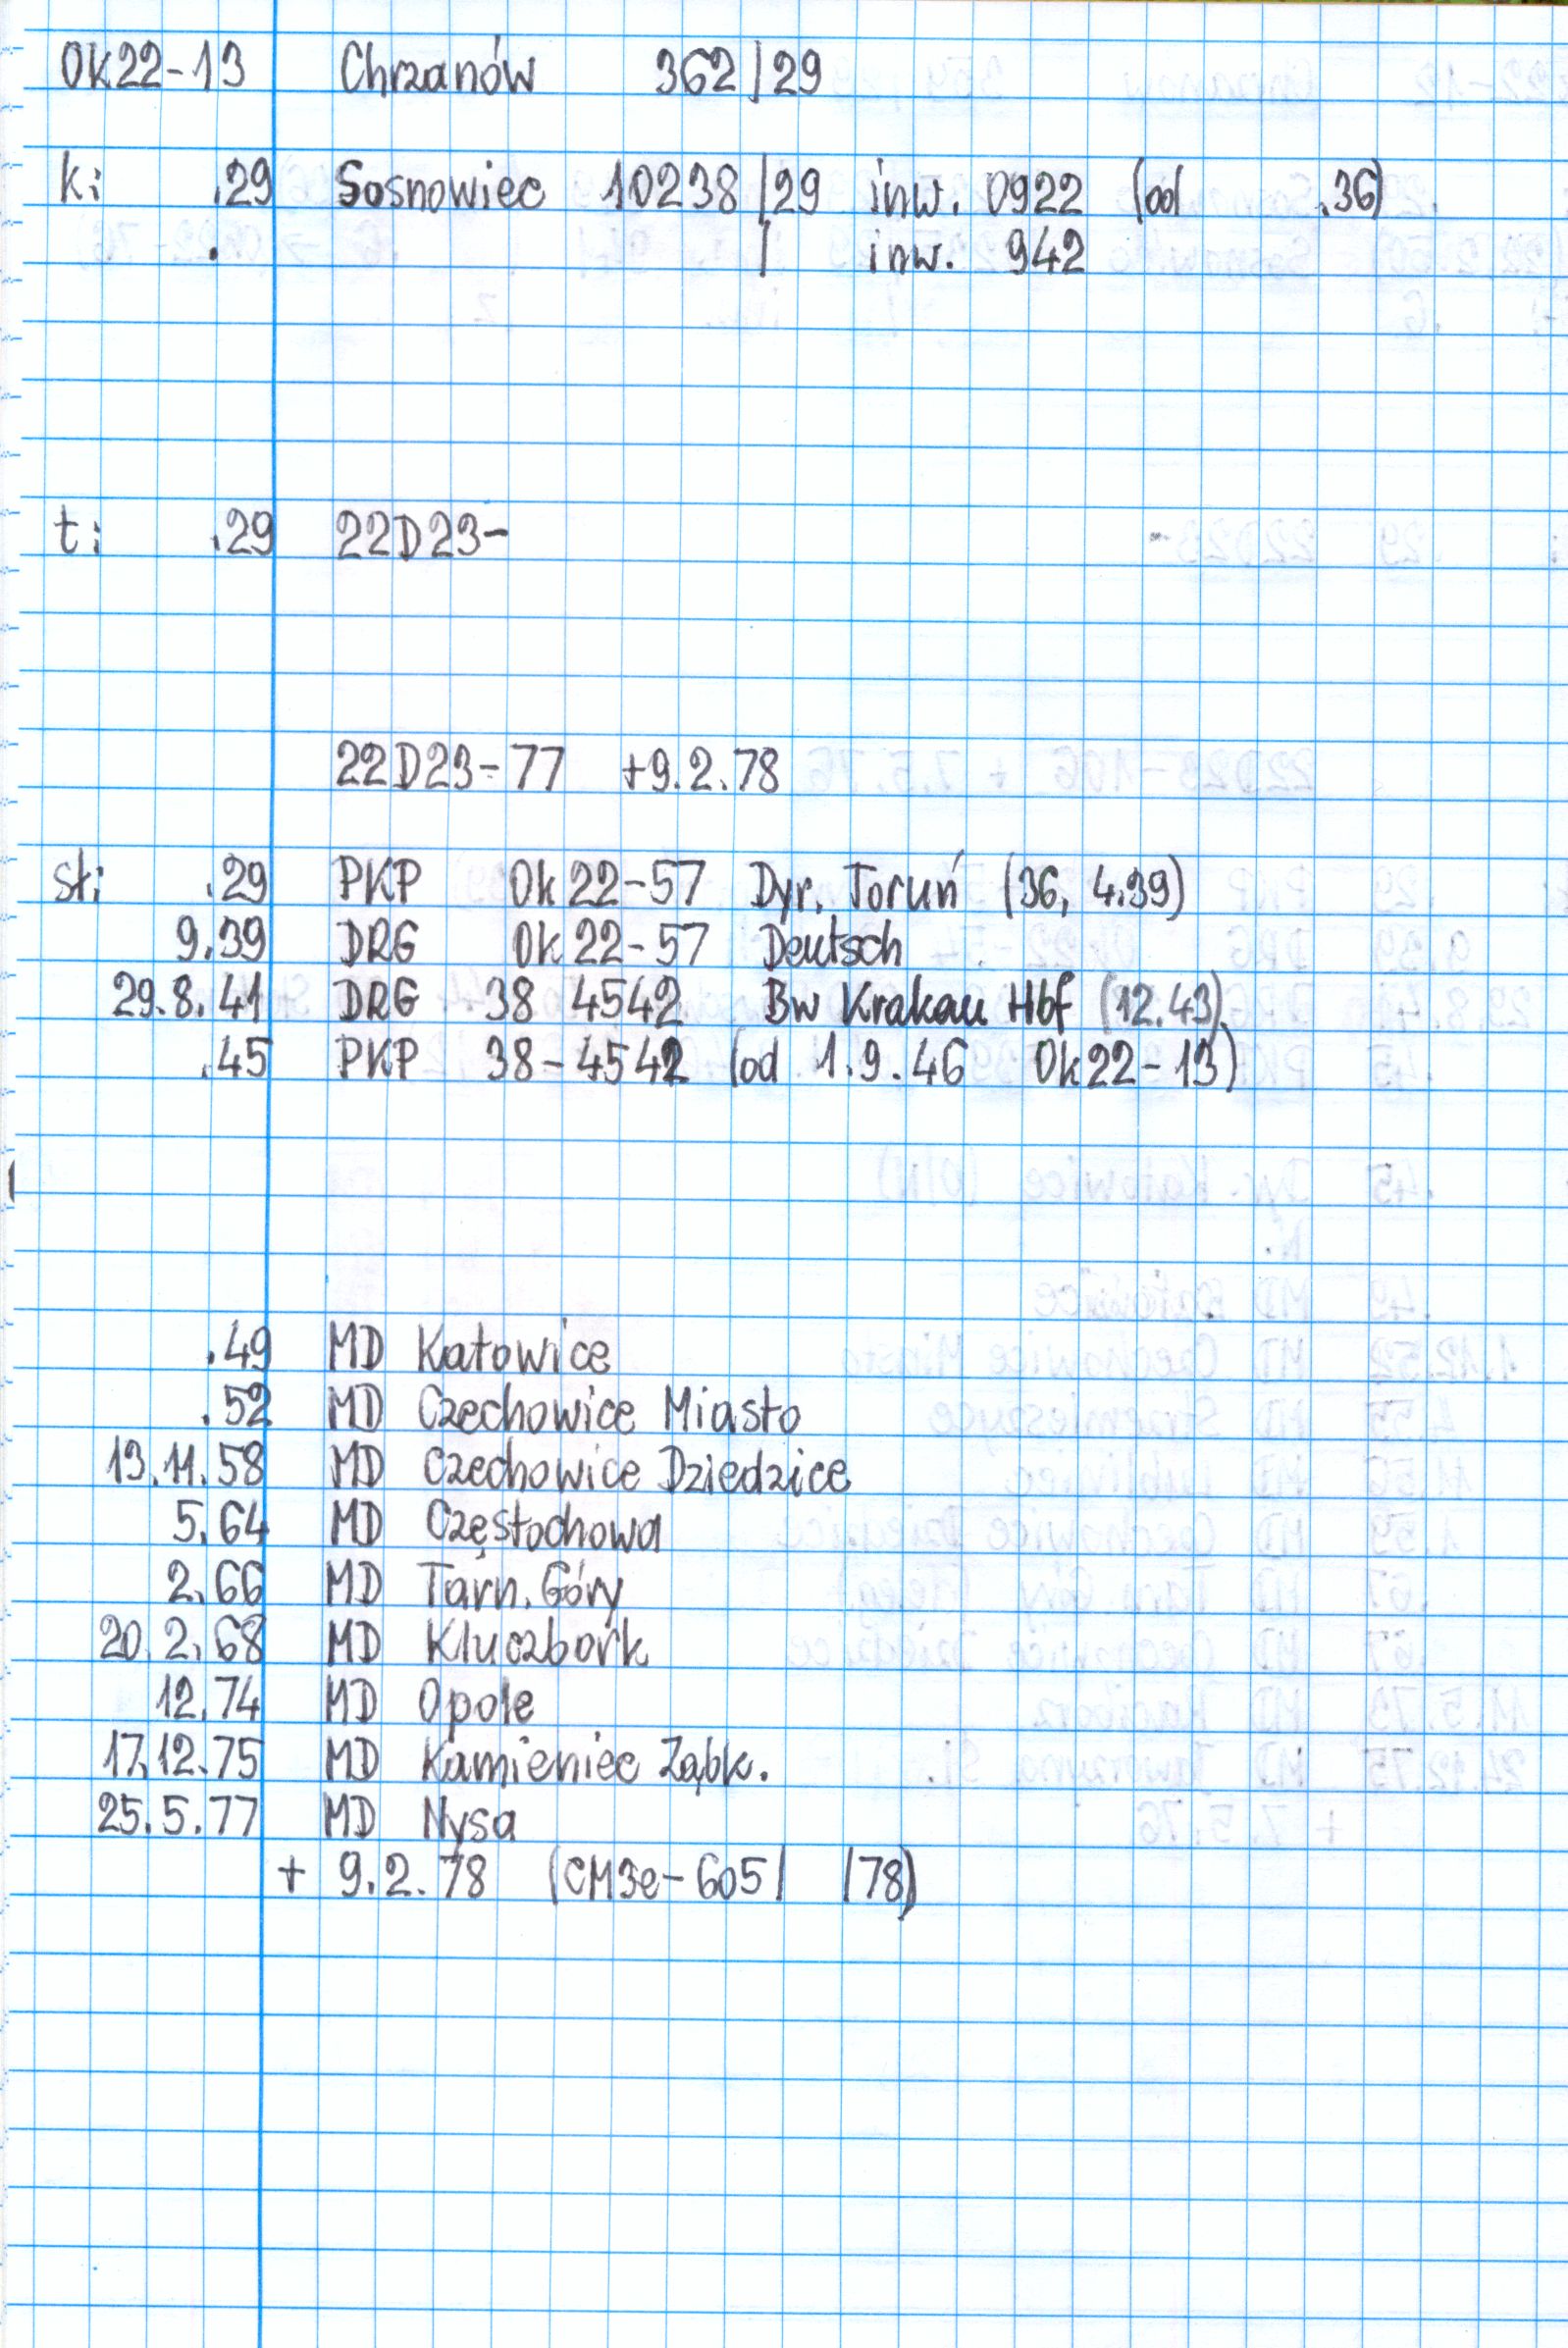 Ok22-13 Chrzanów 362/29
k: .29 Sosnowiec 10238/29 inw. 0922 (od .36)
. / inw. 942
t: .29 22D23-
22D23-77 +9.2.78
sł: .29 PKP Ok22-57 Dyr. Toruń (36, 4.39)
9.39 DRG Ok22-57 Deutsch
29.8.41 DRG 38 4542 Bw Krakau Hbf (12.43)
.45 PKP 38-4542 (od 1.9.46 Ok22-13)
.49 MD Katowice
.52 MD Czechowice Miasto
13.11.58 MD Czechowice Dziedzice
5.64 MD Częstochowa
2.66 MD Tarn. Góry
20.2.68 MD Kluczbork
12.74 MD Opole
17.12.75 MD Kamieniec Ząbk.
25.5.77 MD Nysa
+ 9.2.78 (CM3e-605/ /78)